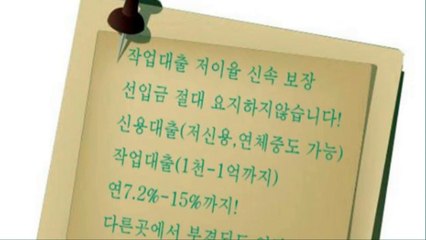 작업대출 저이율 신속 보장
선입금 절대 요지하지않습니다!
신용대출(저신용,연체중도 가능)
작업대출(1천-1억까지)
연7.2%-15%까지!
다른곳에서